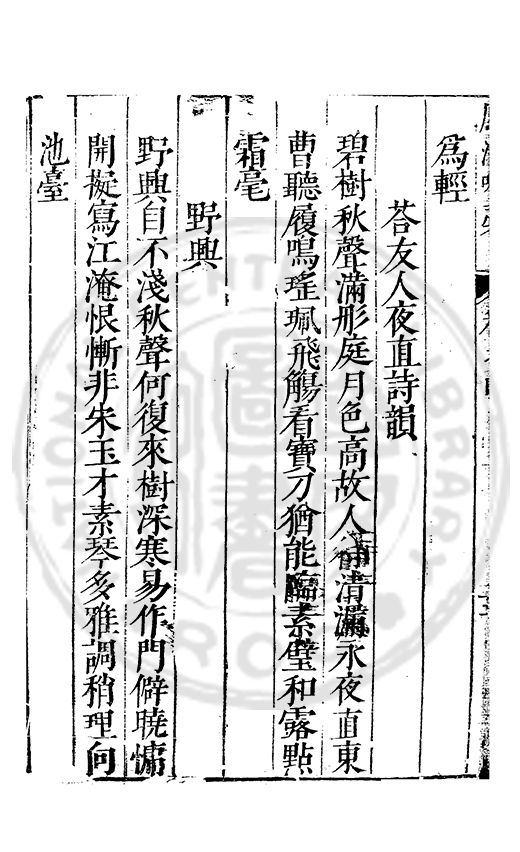 為輕
荅友人夜直詩韻
碧樹秋聲滿形庭月色高故人清漏永夜直東
曹聽履鳴瑤珮飛觴看寶刀猶能臨素璧和露點
霜毫
野興
野興自不淺秋聲何復來樹深寒易作門僻曉慵
開擬寫江淹恨慚非宋玉才素琴多雅調稍理向
池臺